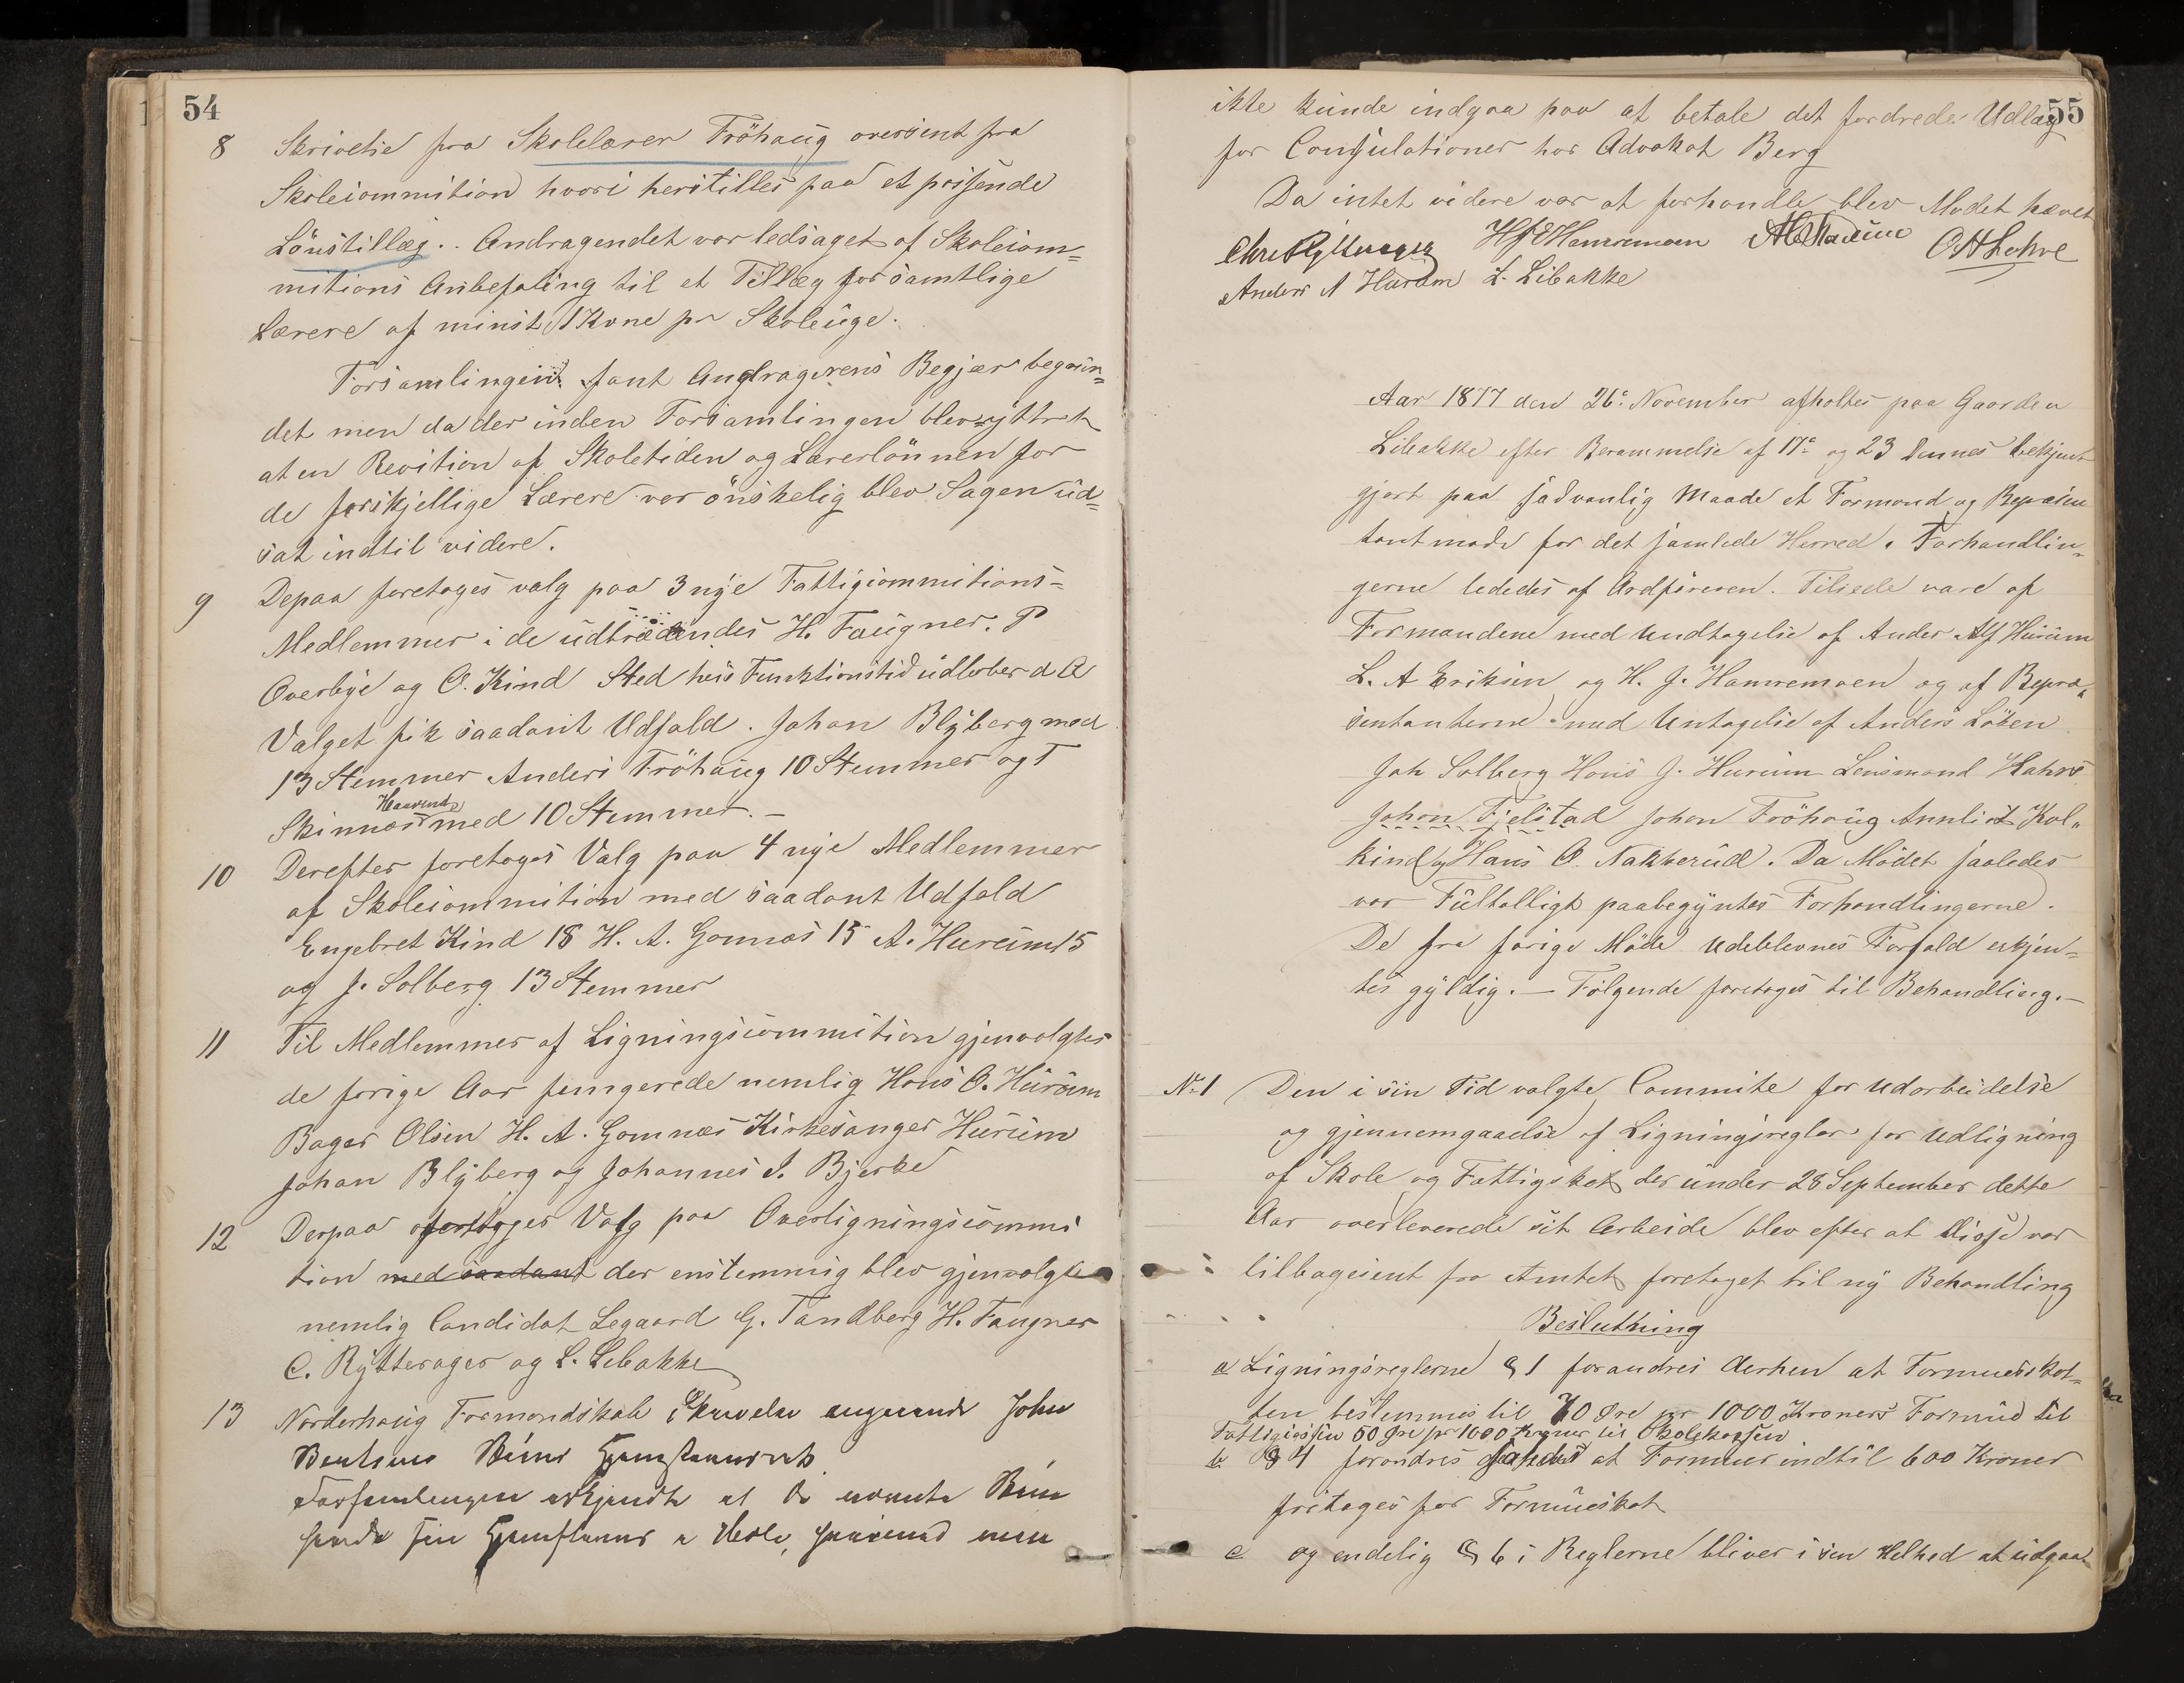 54
8 Skrivelse fra Skolelærer Fröhaug oversent fra
Skolecommition hvori herstilles paa et passende
Lönstillæg. Andragendet var ledsaget af Skolecom=
mitions Anbefaling til et Tillæg for samtlige
Lærere af minst 1 Krone pr Skoleuge.
Forsamlingen fant Andragerens Begjær begrün=
det men da der inden Forsamlingen blev yttret
at en Revition af Skoletiden og Lærerlönnen for
de forskjellige Lærere var önskelig blev Sagen ud=
sat indtil videre.
9 Depaa foretoges valg paa 3 nye Fattigcommitions=
Medlemmer i de udtrædendes H. Faugner. P
Overbye og O. Kind Sted hvis Funktionstid udlöber d A
Valget fik saadant Udfald. Johan Blyberg med
13 Stemmer Anders Fröhaug 10 Stemmer og T
Skinnæs Haavend med 10 Stemmer.—
10 Derefter foretoges Valg paa 4 nye Medlemmer
af Skolecommition med saadant Udfald
Engebret Kind 18 H. A. Gomnæs 15 A. Hurum 15
og J. Solberg 13 Stemmer
11 Til Medlemmer af Ligningscommition gjenvalgtes
de forige Aar fungerede nemlig Hans O. Hurum
Bager Olsen H. A. Gomnæs Kirkesanger Hurum
Johan Blyberg og Johannes J. Bjerke
12 Derpaa foretoges Valg paa Overligningscommi
tion med saadant der enstemmig blev gjenvalgte
nemlig Candidat Legaard G. Tandberg H. Faugner
C. Rytterager og L. Libakke
13 Norderhaug Formandskab i Skrivelse angaaende John
Bentsens Hjemstavnsret
Forsamlingen erkjendte at
havde sin Hjemstavn i Hole, men
55
ikke kunde indgaa paa at betale det fordrede Udlæg
for Consulationer hos Advokat Berg
Da intet videre var at forhandle blev Mödet hævet
Chr Rytterager H J Hanremoen OH Lohre
Anders A Hurum L. Libakke
Aar 1877 den 26de November afholtes paa Gaarden
Libakke efter Berammelse af 17de og 23 Dennes bekjent
gjort paa sædvanlig Maade et Formand og Repræsen
tantmöde for det samlede Herred. Forhandlin=
gerne lededes af Ordföreren. Tilstede vare af
Formandene med Undtagelse af Anders Alf Hurum
L. A Eriksen og H. J. Hanremoen og af Repræ=
sentanterne med Untagelse af Anders Löken
Joh Solberg Hans J. Hurum Lensmand Hahre
Johan Fjelstad Johan Fröhaug Kol=
kind og Hans O. Nakkerud. Da Mödet saaledes
var Fultalligt paabegyntes Forhandlingerne.
De fra forige Möde Udeblevnes Forfald erkjen=
tes gyldig.— Fölgende foretoges til Behandling.—
No 1 Den i sin Tid valgte Commite for Udarbeidelse
og gjennemgaaelse af Ligningsregler for Udligning
af Skole og Fattigskat der under 28 September dette
Aar overleverede sit Arbeide blev efter at disse var
tilbagesent fra Amtet foretaget til ny Behandling
Beslutning
a Ligningsreglerne § 1 forandres derhen at Formuesskat=
ten bestemmes til 70 Öre pr 1000 Kroners Formue til
Fattigkassen 50 Öre pr 1000 Kroner til Skolekassen
b § 4 forandres saaledes at Formuer indtil 600 Kroner
fritages for Formueskat
c og endelig § 6 i Reglerne bliver i sin Helhed at udgaa